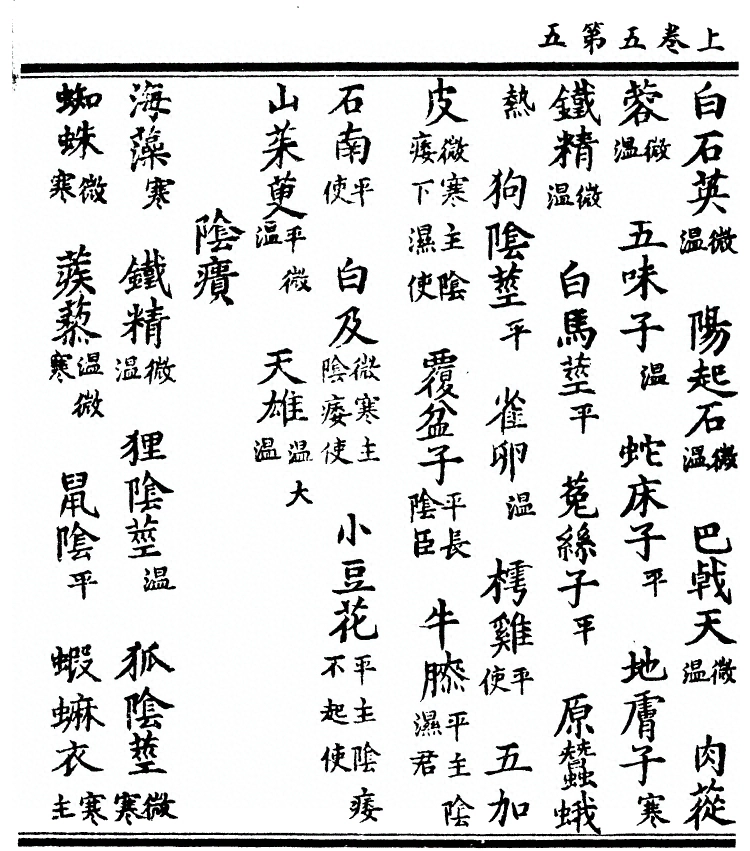 上卷五第五
白石英微温　陽起石微温　巴戟天微温　肉蓯
蓉微温　五味子温　蛇床子平　地膚子寒
鐵精微温　白馬莖平　菟絲子平　原蠶蛾
熱　狗陰莖平　雀卵温　樗雞平使　五加
皮微寒主陰痿下濕使　覆盆子平長陰臣　牛膝平主陰濕君
石南平使　白及微寒主陰痿使　小豆花平主陰痿不起使
山茱萸平微温　天雄温大温
陰㿉
海藻寒　鐵精微温　狸陰莖温　狐陰莖微寒
蜘蛛微寒　蒺藜温微寒　鼠陰平　蝦蟆衣寒主